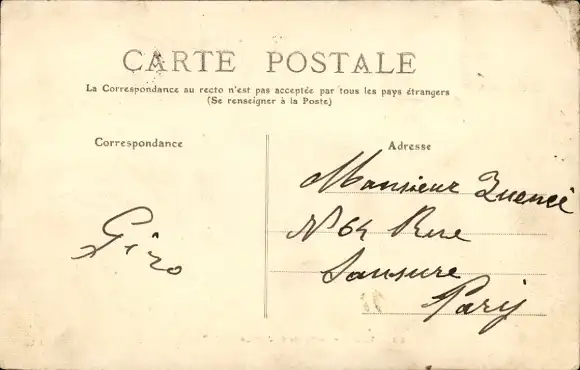 CARTE POSTALE
La Correspondance au recto n'est pas acceptée par tous les pays étrangers
(Se renseigner à la Poste)
Correspondance
Adresse
Monsieur
N° 64 Rue
Sausure
Paris